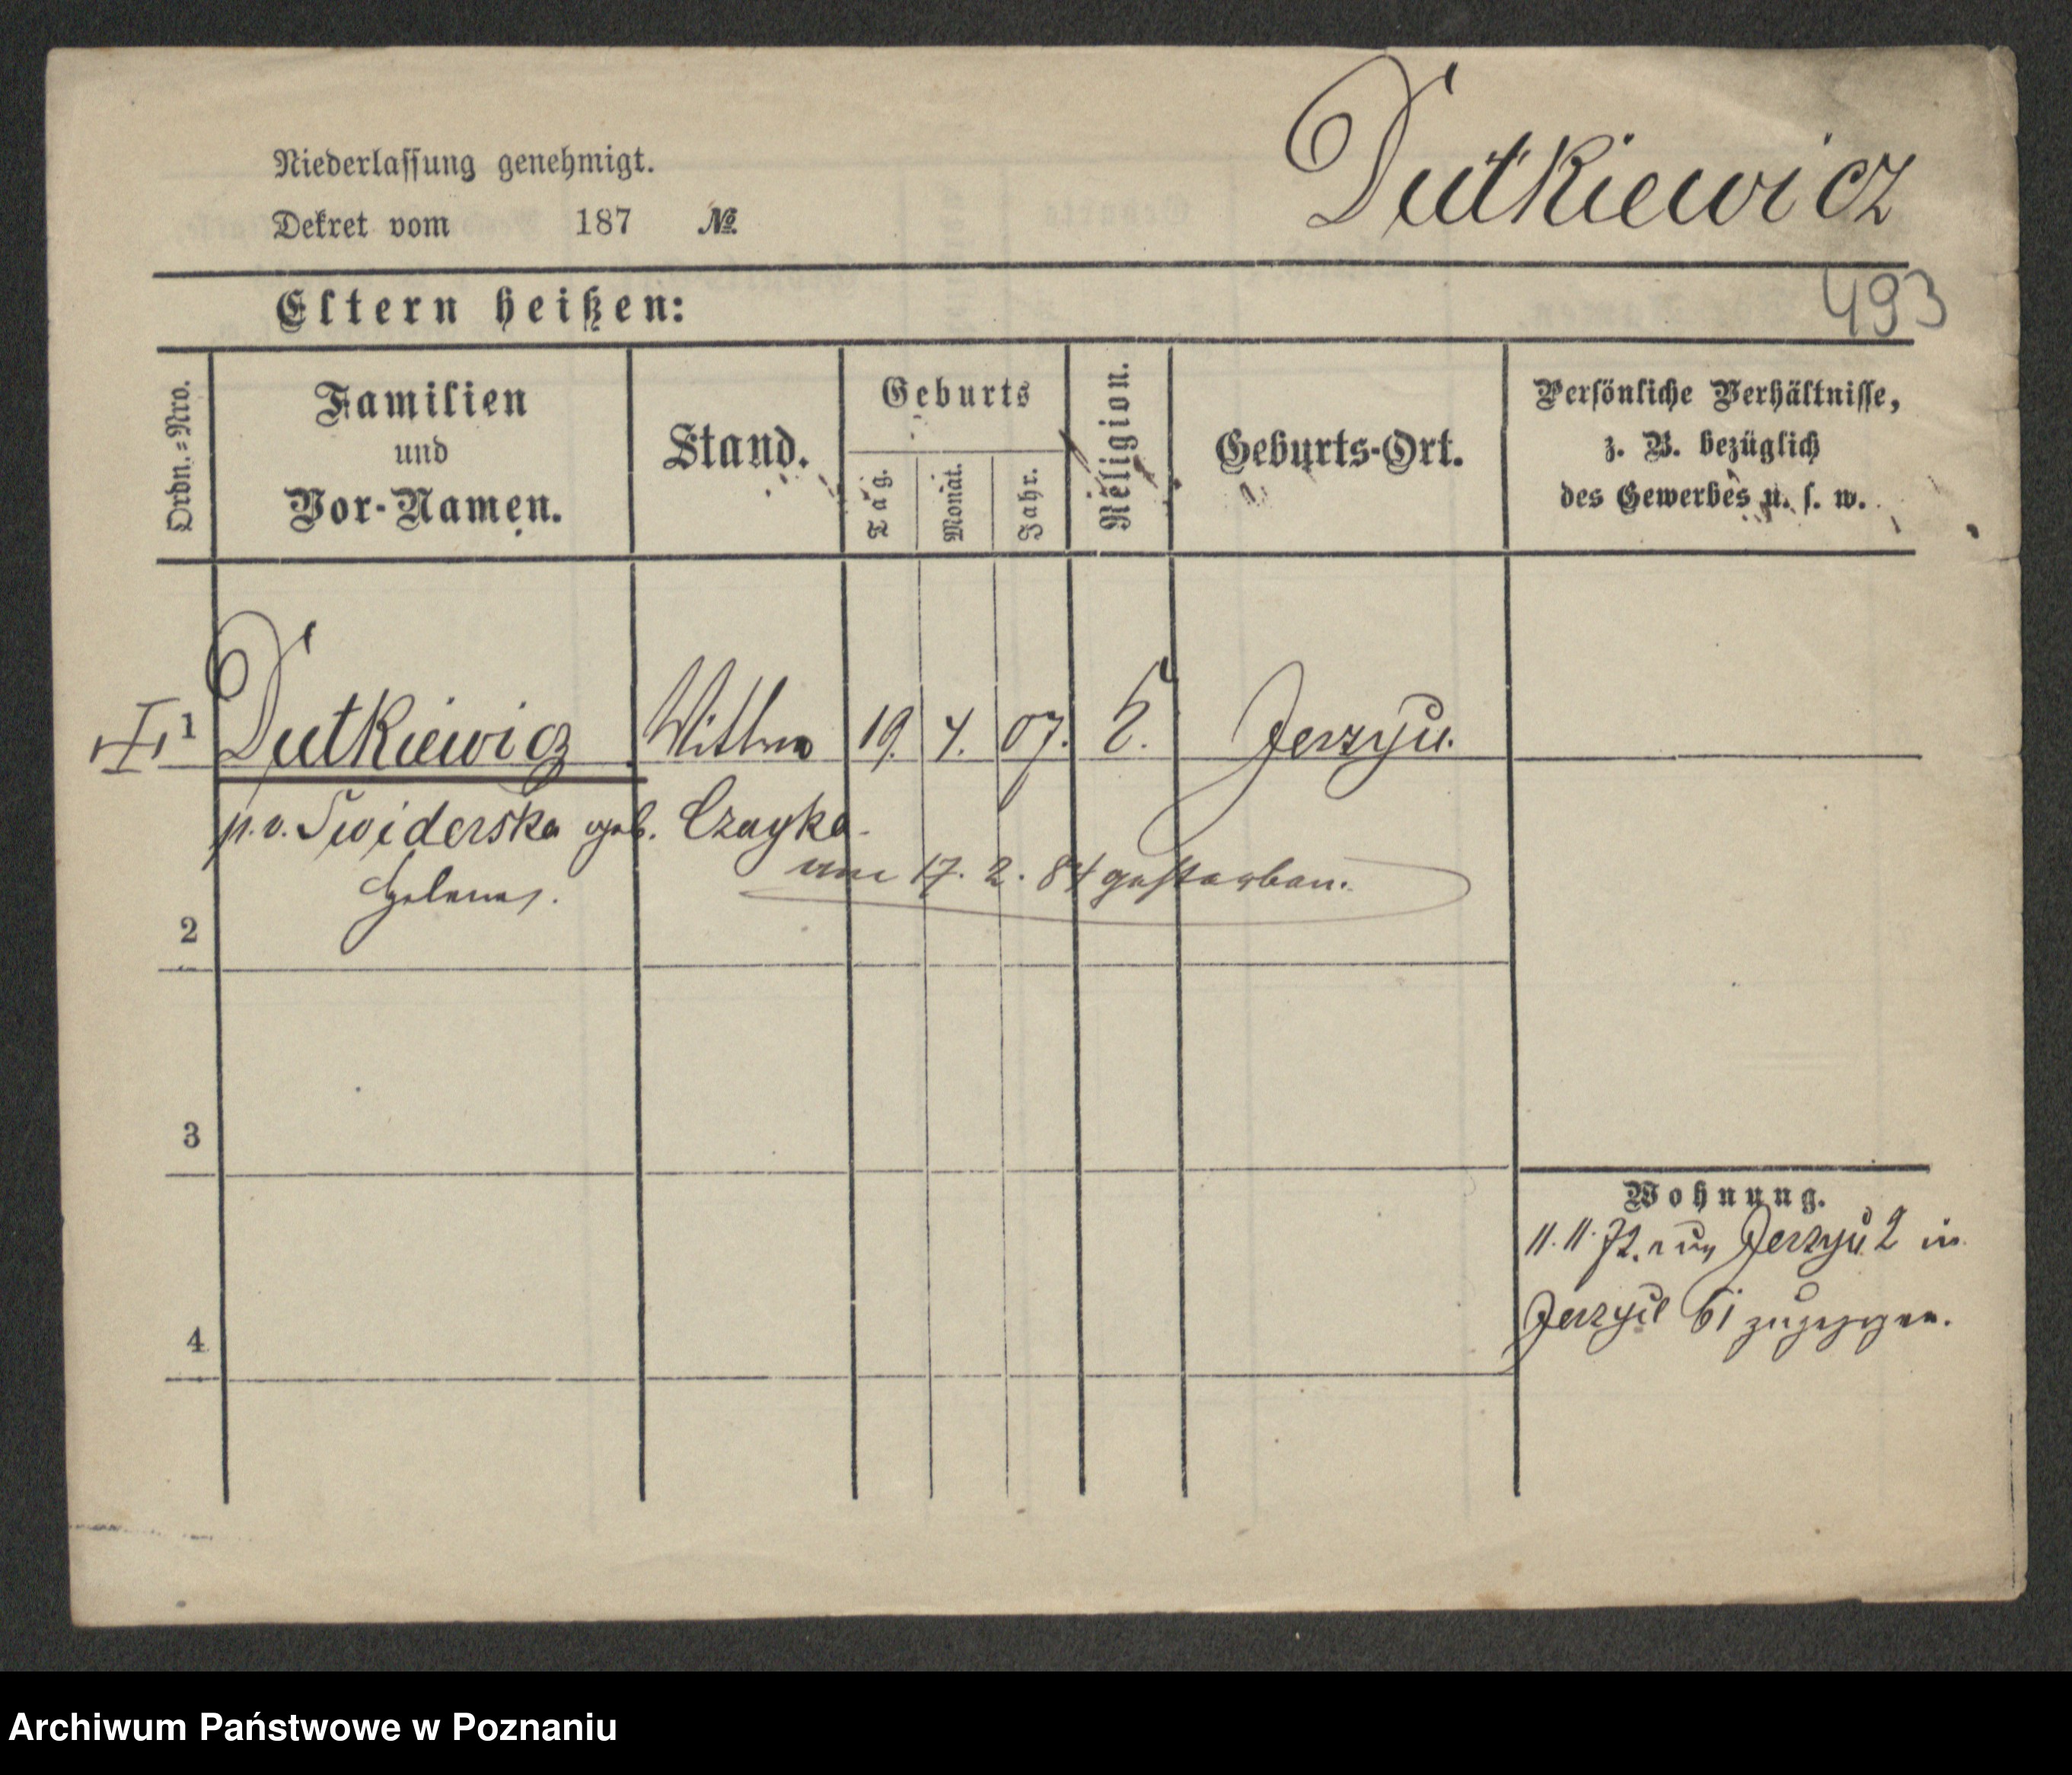 Dutkiewicz
Niederlassung genehmigt.
Dekret vom 187 №
493
Eltern heißen:
Ordn.=Nro.
Familien
und
Vor-Namen.
Stand.
Geburts
Tag.
Monat.
Jahr.
Religion.
Geburts-Ort.
Persönliche Verhältnisse,
z. B. bezüglich
des Gewerbes u. s. w.
1 Dutkiewicz Wittwe 19. 4. 07. Jerzyce.
p. v. Swiderska geb. Czayka
am 17. 2. 84 gestorben.
Helena.
2
3
4
Wohnung.
11. 11. 72. Jerzyce 2 in
Jerzyce 61 zugezogen.
Archiwum Państwowe w Poznaniu